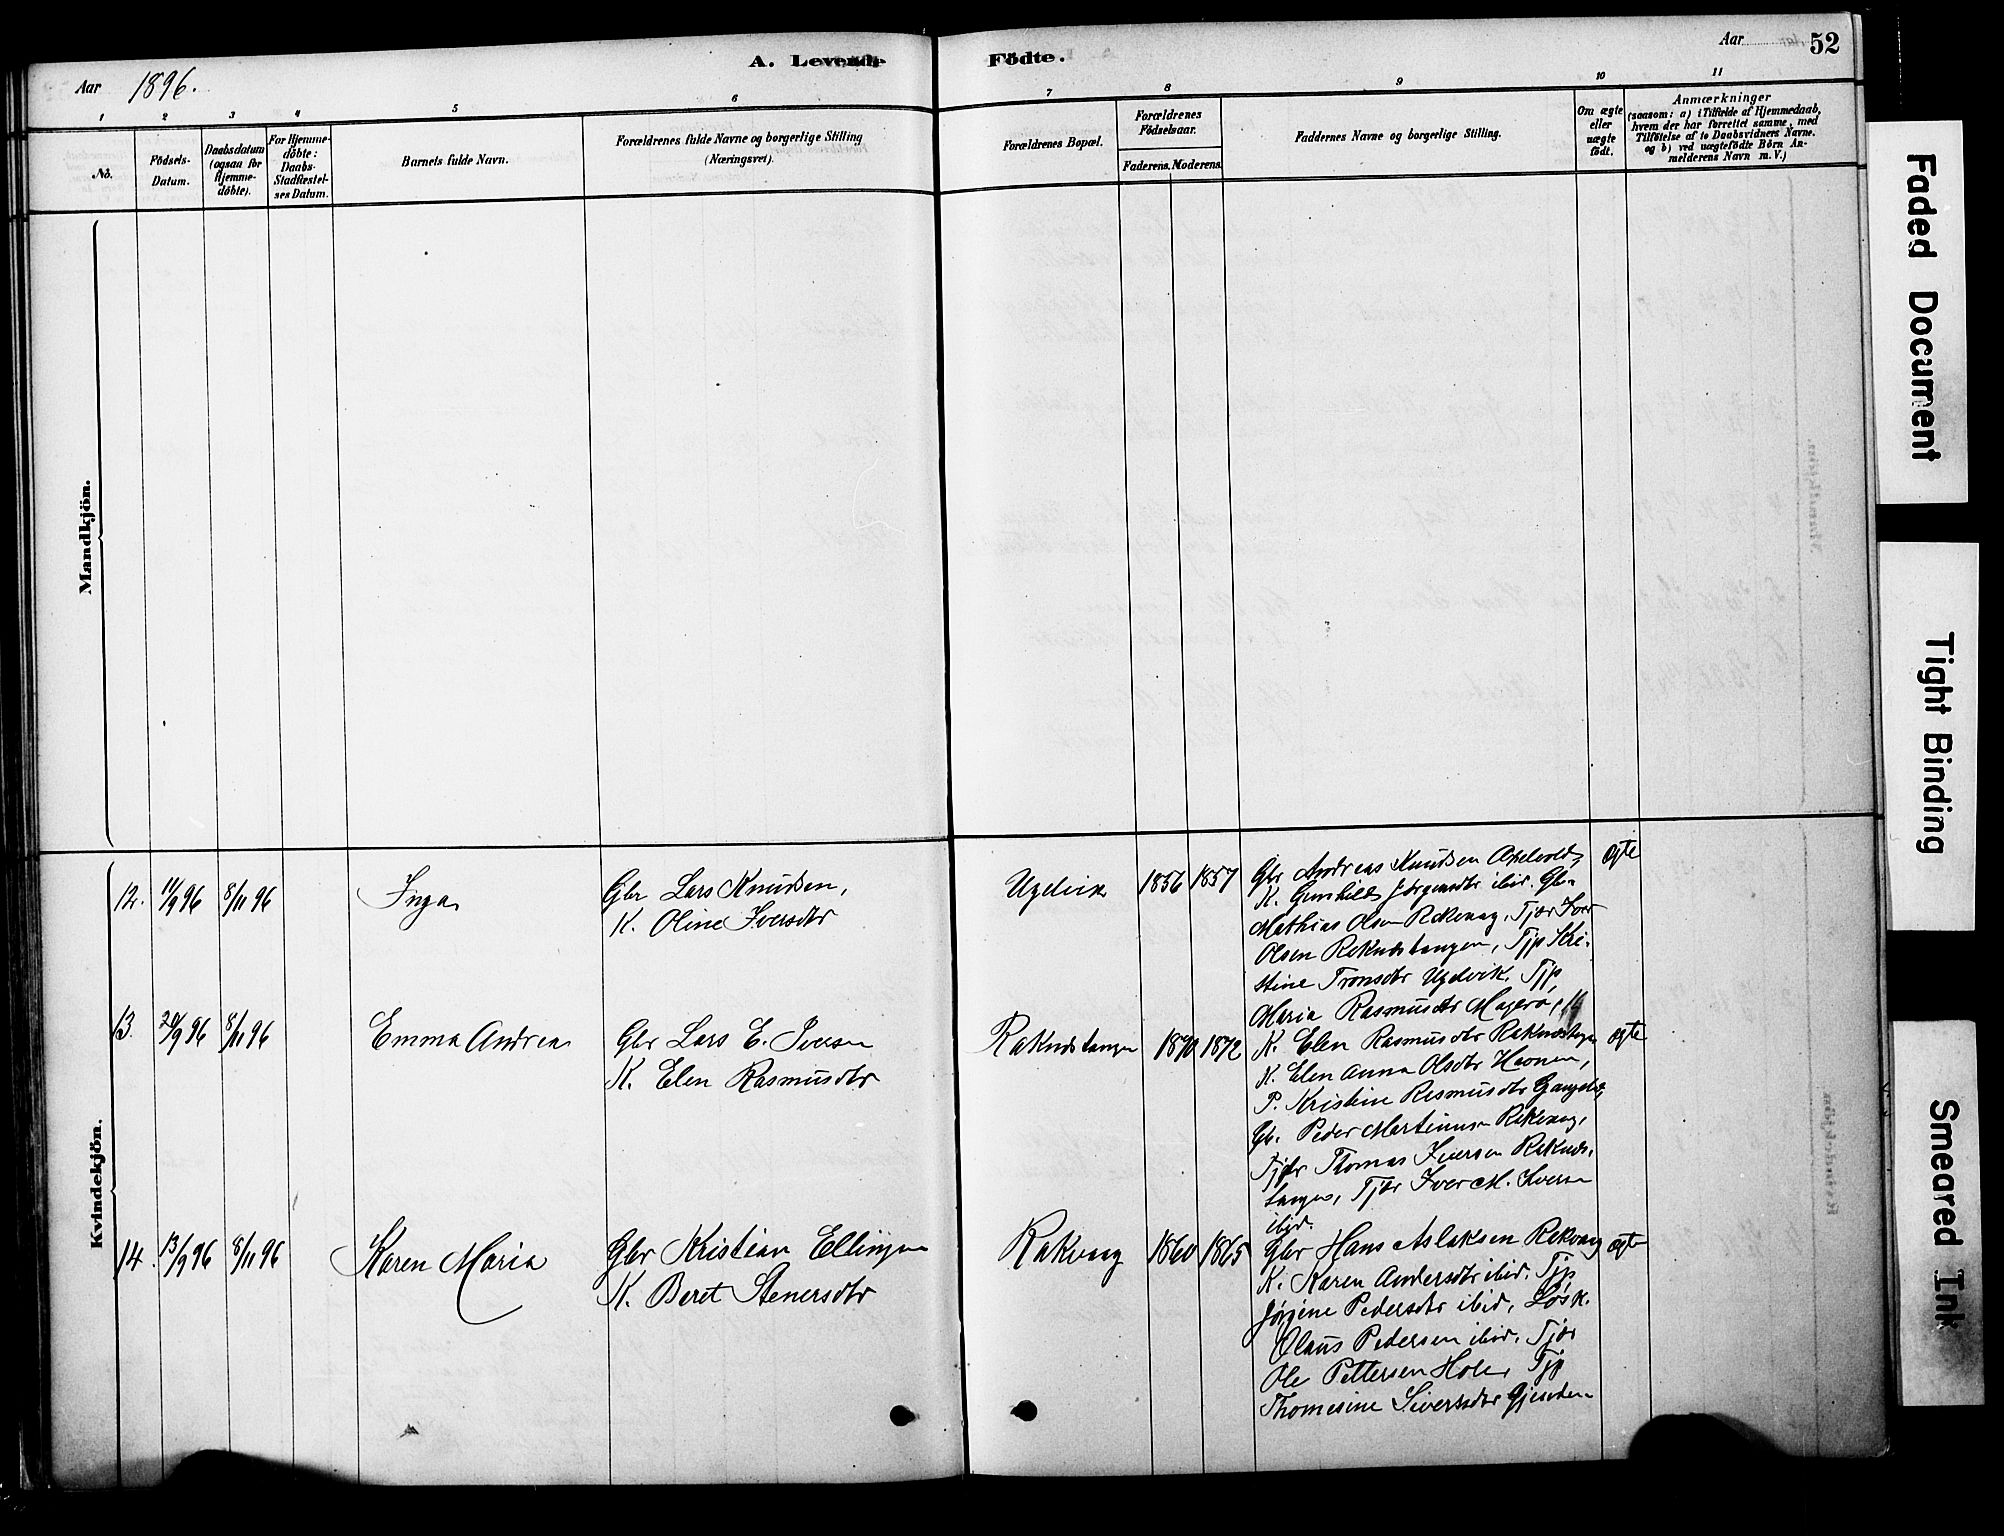 A. Levende Födte.
Aar 1896.
Aar 52
1 2 3 4 5 6 7 8 9 10 11
No.
Födsels-Datum.
Daabsdatum (ogsaa for Hjemme-döbte).
For Hjemme-döbte: Daabs-Stadfæstel-ses Datum.
Barnets fulde Navn.
Forældrenes fulde Navne og borgerlige Stilling (Næringsvei).
Forældrenes Bopæl.
Forældrenes Födselsaar.
Faderens. Moderens.
Faddernes Navne og borgerlige Stilling.
Om ægte eller uægte födt.
Anmærkninger (saasom: a) i Tilfælde af Hjemmedaab, hvem der har forrettet samme, med Tilföielse af to Daabsvidners Navne, og b) ved uægtefödte Börn Anmelderens Navn m. V.)
Mandkjön.
Kvindekjön.
12. 11/9 96 8/11 96 Inga
Gbr Lars Knudsen,
K. Oline Iversdtr
Ugelvik 1856 1857
Gbr Andreas Knudsen
K. Gunhild Jörgensdtr ibid. Gbr
Mathias Olsen Rekvaag, Tjdr Iver
Olsen Rekndstangen, Tjp Kri-
stine Tronsdtr Ugelvik. Tjp
Maria Rasmusdtr Magerö,
ægte
13. 20/9 96 8/11 96 Emma Andrea
Gbr Lars E. Iversen
K. Elen Rasmusdtr
Rakndstangen 1870 1872
K. Elen Rasmusdtr Rakndstangen
K. Elen Anna Olsdtr
P. Kristine Rasmusdtr
Gb. Peder Martinusen Rekvaag,
Tjdr Thomas Iversen Reknds-
tangen, Tjdr Iver M. Iversen
ibid.
ægte
14. 13/9 96 8/11 96 Karen Maria
Gbr Kristian Ellingsen
K. Beret Stenersdtr
Rakvaag 1860 1865
Gbr Hans Aslaksen Rekvaag
K. Karen Andersdtr ibid. Tjp
Jörgine Pedersdtr ibid, Lösk.
Olaus Pedersen ibid. Tjdr
Ole Pettersen Holen Tjp
Thomesine Siversdtr
ægte
Faded Document
Tight Binding
Smeared Ink